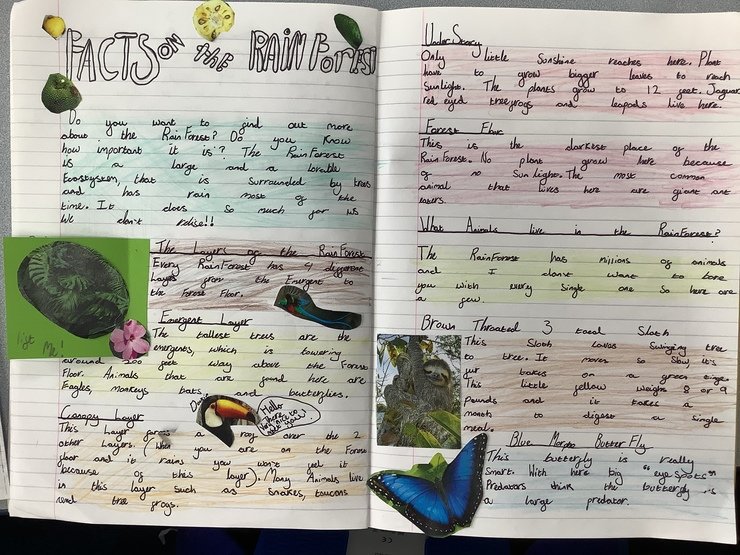 FACTS ON the RAIN Forest
Do you want to find out more
about the Rain Forest? Do you Know
how important it is? The Rain Forest
is a large and a lovable
Ecosystem, that is surrounded by trees
and has rain most of the
time. It does so much for us
We don't relise!!
The Layers of the RainForest
Every RainForest has 4 different
Layers from the Emergent to
the Forest Floor.
light Me!
Emergent Layer
The tallest trees are the
emergents, which is towering
around 200 feet way above the Forest
Floor. Animals that are found here are
Eagles, monkeys bats and butterflies.
Hello
there
nice to
Canopy Layer
This Layer forms a roof over the 2
other Layers. (When you are on the Forest
floor and it rains you won't feel it
because of this layer). Many Animals live
in this layer such as snakes, toucans
and tree frogs.
Under Storey
Only little Sonshine reaches here. Plant
have to grow bigger leaves to reach
Sunlight. The plants grow to 12 feet. Jaguar
red eyed treefrogs and leapods live here.
Forest Floor
This is the darkest place of the
RainForest. No plant grow here because
of no Sun light. The most common
animal that lives here are giant ant
eaters.
What Animals live in the RainForest?
The RainForest has millions of animals
and I don't want to bore
you with every single one so here are
a few.
Brown Throated 3 toed Sloth
This Sloth Loves Swinging tree
to tree. It moves so Slow, it's
fur takes on a green tinge.
This little yellow weighs 8 or 9
pounds and it takes a
month to digest a single
meal.
Blue Morpho Butter Fly
This butterfly is really
Smart. With here big "eye spots"
Predators think the butterfly is
a large predator.